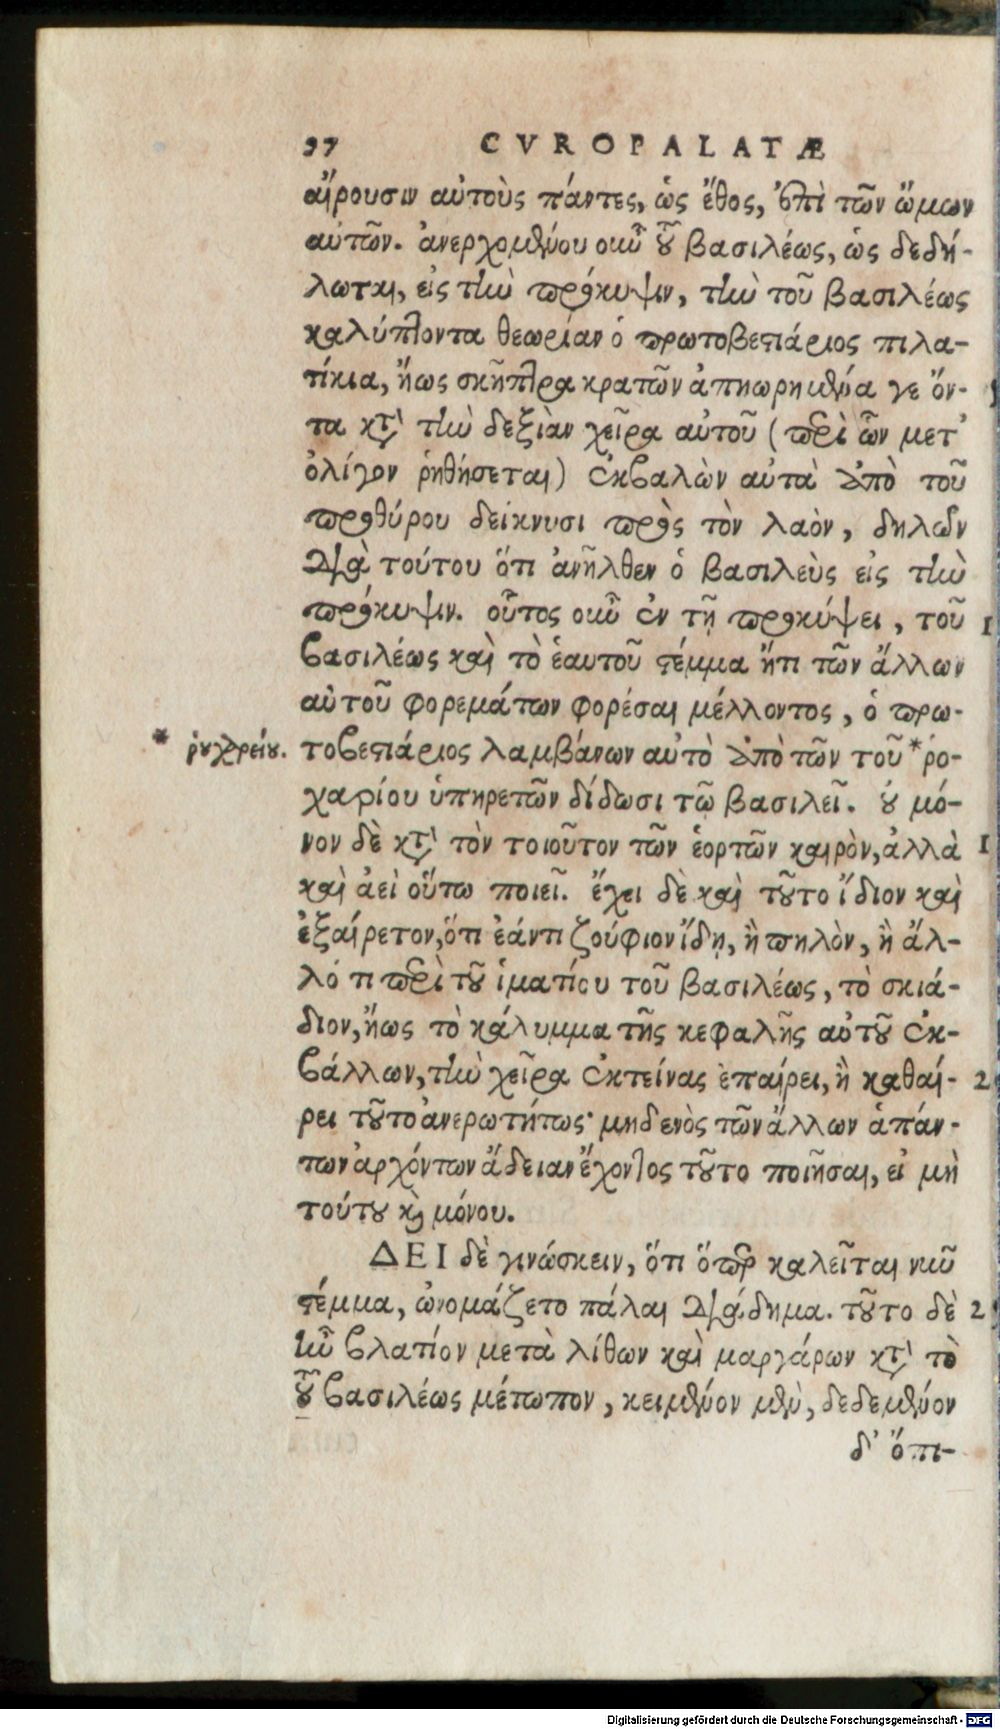 97 CVROPALATÆ
αἴρουσιν αὐτοὺς πάντες, ὡς ἔθος, ἐπὶ τῶν ὤμων
αὐτῶν. ἀνερχομένου οὖν τοῦ βασιλέως, ὡς δεδή-
λωται, εἰς τὴν πρόκυψιν, τὴν τοῦ βασιλέως
καλύπτοντα θεωρίαν ὁ πρωτοβεστιάριος πιλα-
τίκια, ἤως σκῆπτρα κρατῶν ἀπῃωρημένα γε ὄν-
τα κατὰ τὴν δεξιὰν χεῖρα αὐτοῦ (περὶ ὧν μετ᾽
ὀλίγον ῥηθήσεται) ἐκβαλὼν αὐτὰ ἀπὸ τοῦ
προθύρου δείκνυσι πρὸς τὸν λαὸν, δηλῶν
διὰ τούτου ὅτι ἀνῆλθεν ὁ βασιλεὺς εἰς τὴν
πρόκυψιν. οὗτος οὖν ἐν τῇ προκύψει, τοῦ 1
βασιλέως καὶ τὸ ἑαυτοῦ στέμμα ἤτι τῶν ἄλλων
αὐτοῦ φορεμάτων φορέσαι μέλλοντος, ὁ πρω-
τοβεστιάριος λαμβάνων αὐτὸ ἀπὸ τῶν τοῦ * ῥο-
* ῥουχαρείου.
χαρίου ὑπηρετῶν δίδωσι τῷ βασιλεῖ. οὐ μό-
νον δὲ κατὰ τὸν τοιοῦτον τῶν ἑορτῶν καιρὸν, ἀλλὰ 1
καὶ ἀεὶ οὕτω ποιεῖ. ἔχει δὲ καὶ τοῦτο ἴδιον καὶ
ἐξαίρετον, ὅτι ἐάντι ζούφιον ἴδῃ, ἢ πηλὸν, ἢ ἄλ-
λό τι περὶ τοῦ ἱματίου τοῦ βασιλέως, τὸ σκιά-
διον, ἤως τὸ κάλυμμα τῆς κεφαλῆς αὐτοῦ ἐκ-
βάλλων, τὴν χεῖρα ἐκτείνας ἐπαίρει, ἢ καθαί- 2
ρει τοῦτο ἀνερωτήτως· μηδενὸς τῶν ἄλλων ἁπάν-
των ἀρχόντων ἄδειαν ἔχοντος τοῦτο ποιῆσαι, εἰ μὴ
τούτου καὶ μόνου.
ΔΕΙ δὲ γινώσκειν, ὅτι ὅπερ καλεῖται νῦν
στέμμα, ὠνομάζετο πάλαι διάδημα. τοῦτο δὲ 2
ἦν βλατίον μετὰ λίθων καὶ μαργάρων κατὰ τὸ
τοῦ βασιλέως μέτωπον, κειμένον μὲν, δεδεμένον
δ᾽ ὄπι-
Digitalisierung gefördert durch die Deutsche Forschungsgemeinschaft - DFG